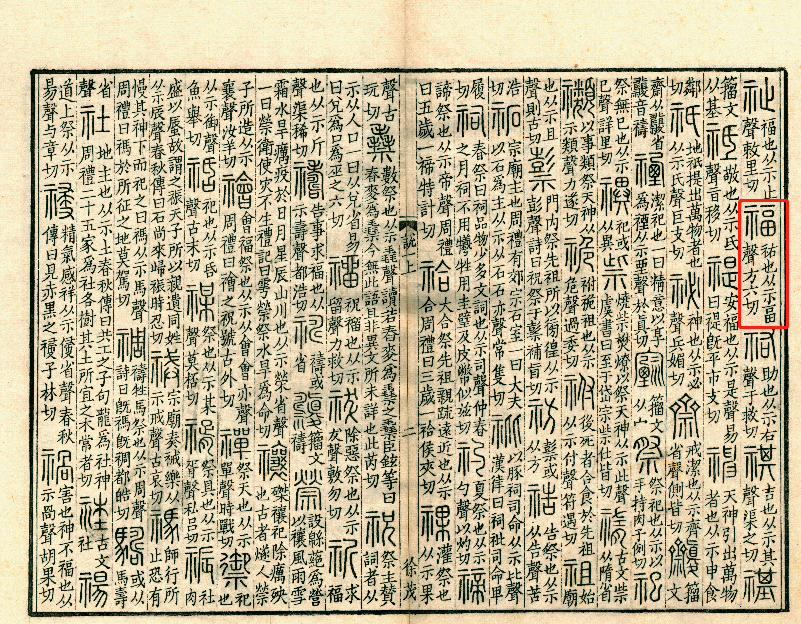 祉福也从示止聲敕里切福祐也从示畐聲方六切祐助也从示右聲于救切祺吉也从示其聲渠之切禥
籒文从基祗敬也从示氐聲旨移切禔安福也从示是聲易曰禔旣平市支切神天神引出萬物者也从示申食
鄰切祇地祇提出萬物者也从示氏聲巨支切祕神也从示必聲兵媚切齋戒潔也从示齊省聲側皆切𥜰籒文
齋从𩆜省𩆜音禱禋潔祀也一曰精意以享爲禋从示垔聲於眞切籒文从宀祭祭祀也从示以手持肉子例切祀
祭無已也从示巳聲詳里切禩祀或从異祡燒祡燓燎以祭天神从示此聲虞書曰至于岱宗祡仕皆切古文祡从隋省
禷以事類祭天神从示類聲力遂切祪祔祪祖也从示危聲過委切祔後死者合食於先祖从示付聲符遇切祖始廟
也从示且聲則古切𥛱門内祭先祖所以徬徨从示彭聲詩曰祝祭于𥛱補盲切祊𥛱或从方祰告祭也从示从告聲苦
浩切祏宗廟主也周禮有郊宗石室一曰大夫以石爲主从示从石石亦聲常隻切以豚祠司命从示比聲漢律曰祠祉司命卑
履切祠春祭曰祠品物少多文詞也从示司聲仲春之月祠不用犧牲用圭璧及皮幣似兹切礿夏祭也从示勺聲以灼切禘
諦祭也从示帝聲周禮曰五歲一禘特計切祫大合祭先祖親疏遠近也从示合周禮曰三歲一祫侯夾切祼灌祭也从示果
說一上 二 徐茂
聲古玩切數祭也从示毳聲讀若春麥爲之臣鉉等曰春麥爲今無此語且非異文所未詳也此芮切祝祭主贊詞者从
示从人口一曰从兊省易曰兊爲口爲巫之六切祝也从示留聲力救切祓除惡祭也从示犮聲敷勿切祈求福
也从示斤聲渠稀切禱告事求福也从示壽聲都浩切禱或省籒文禱禜設緜蕝爲營以禳風雨雪
霜水旱癘疫於日月星辰山川也从示榮省聲一曰禜衛使灾不生禮記曰雩禜祭水旱爲命切禳磔禳祀除癘殃也古者燧人禜
子所造从示襄聲汝羊切禬會福祭也从示从會會亦聲周禮曰禬之祝號古外切禪祭天也从示單聲時戰切禦祀也
从示御聲魚舉切祀也从示昏聲古末切禖祭也从示某聲莫桮切祭具也从示胥聲私呂切祳社肉
盛以蜃故謂之祳天子所以親遺同姓从示辰聲春秋傳曰石尚來歸祳時忍切祴宗廟奏祴樂从示戒聲古哀切禡師行所止恐有
慢其神下而祀之曰禡从示馬聲周禮曰禡於所征之地莫駕切禂禱牲馬祭也从示周聲詩曰旣禡旣禂都皓切或从馬壽
省聲社地主也从示土春秋傳曰共工之子句龍爲社神周禮二十五家爲社各樹其土所宜之木常者切古文社禓
道上祭从示昜聲與章切祲精氣感祥从示省聲春秋傳曰見赤黑之祲子林切禍害也神不福也从示咼聲胡果切